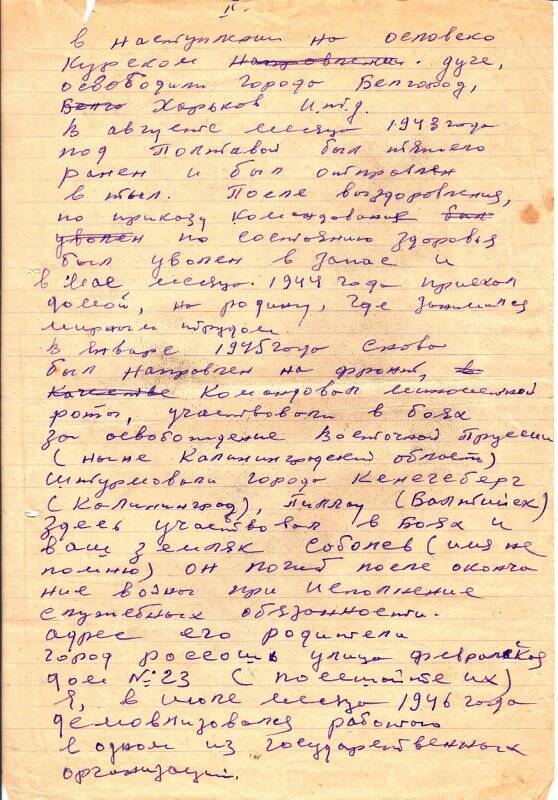 II.
в наступлении наословско
Курском направлении дуге,
освободили города Белгород,
Белго Харьков и.т.д.
В августе месяца 1943 года
под Полтавой был тяжело
ранен и был отправлен
в тыл. После выздоровления,
по приказу командования был
уволен по состоянию здоровья
был уволен в запас и
в мае месяца 1944 года приехал
домой, на родину, где занимался
мирным трудом.
В январе 1945 года снова
был направлен на фронт, в
качестве командовал минометной
роты, участвовали в боях
за освобождение Восточной Пруссии
(ныне Калининградский область)
штурмовали города Кенегсберг
(Калининград), Пиллау (Балтийск)
здесь участвовал в боях и
ваш земляк Соболев (имя не
помню) он погиб после оконча
ние войны при исполнение
служебных обязанности.
адрес его родители
город россошь улица февральская
дом №23 (посетайте их)
Я, в июле месяца 1946 года
демовлизовался работаю
в одном из государственных
организаций.